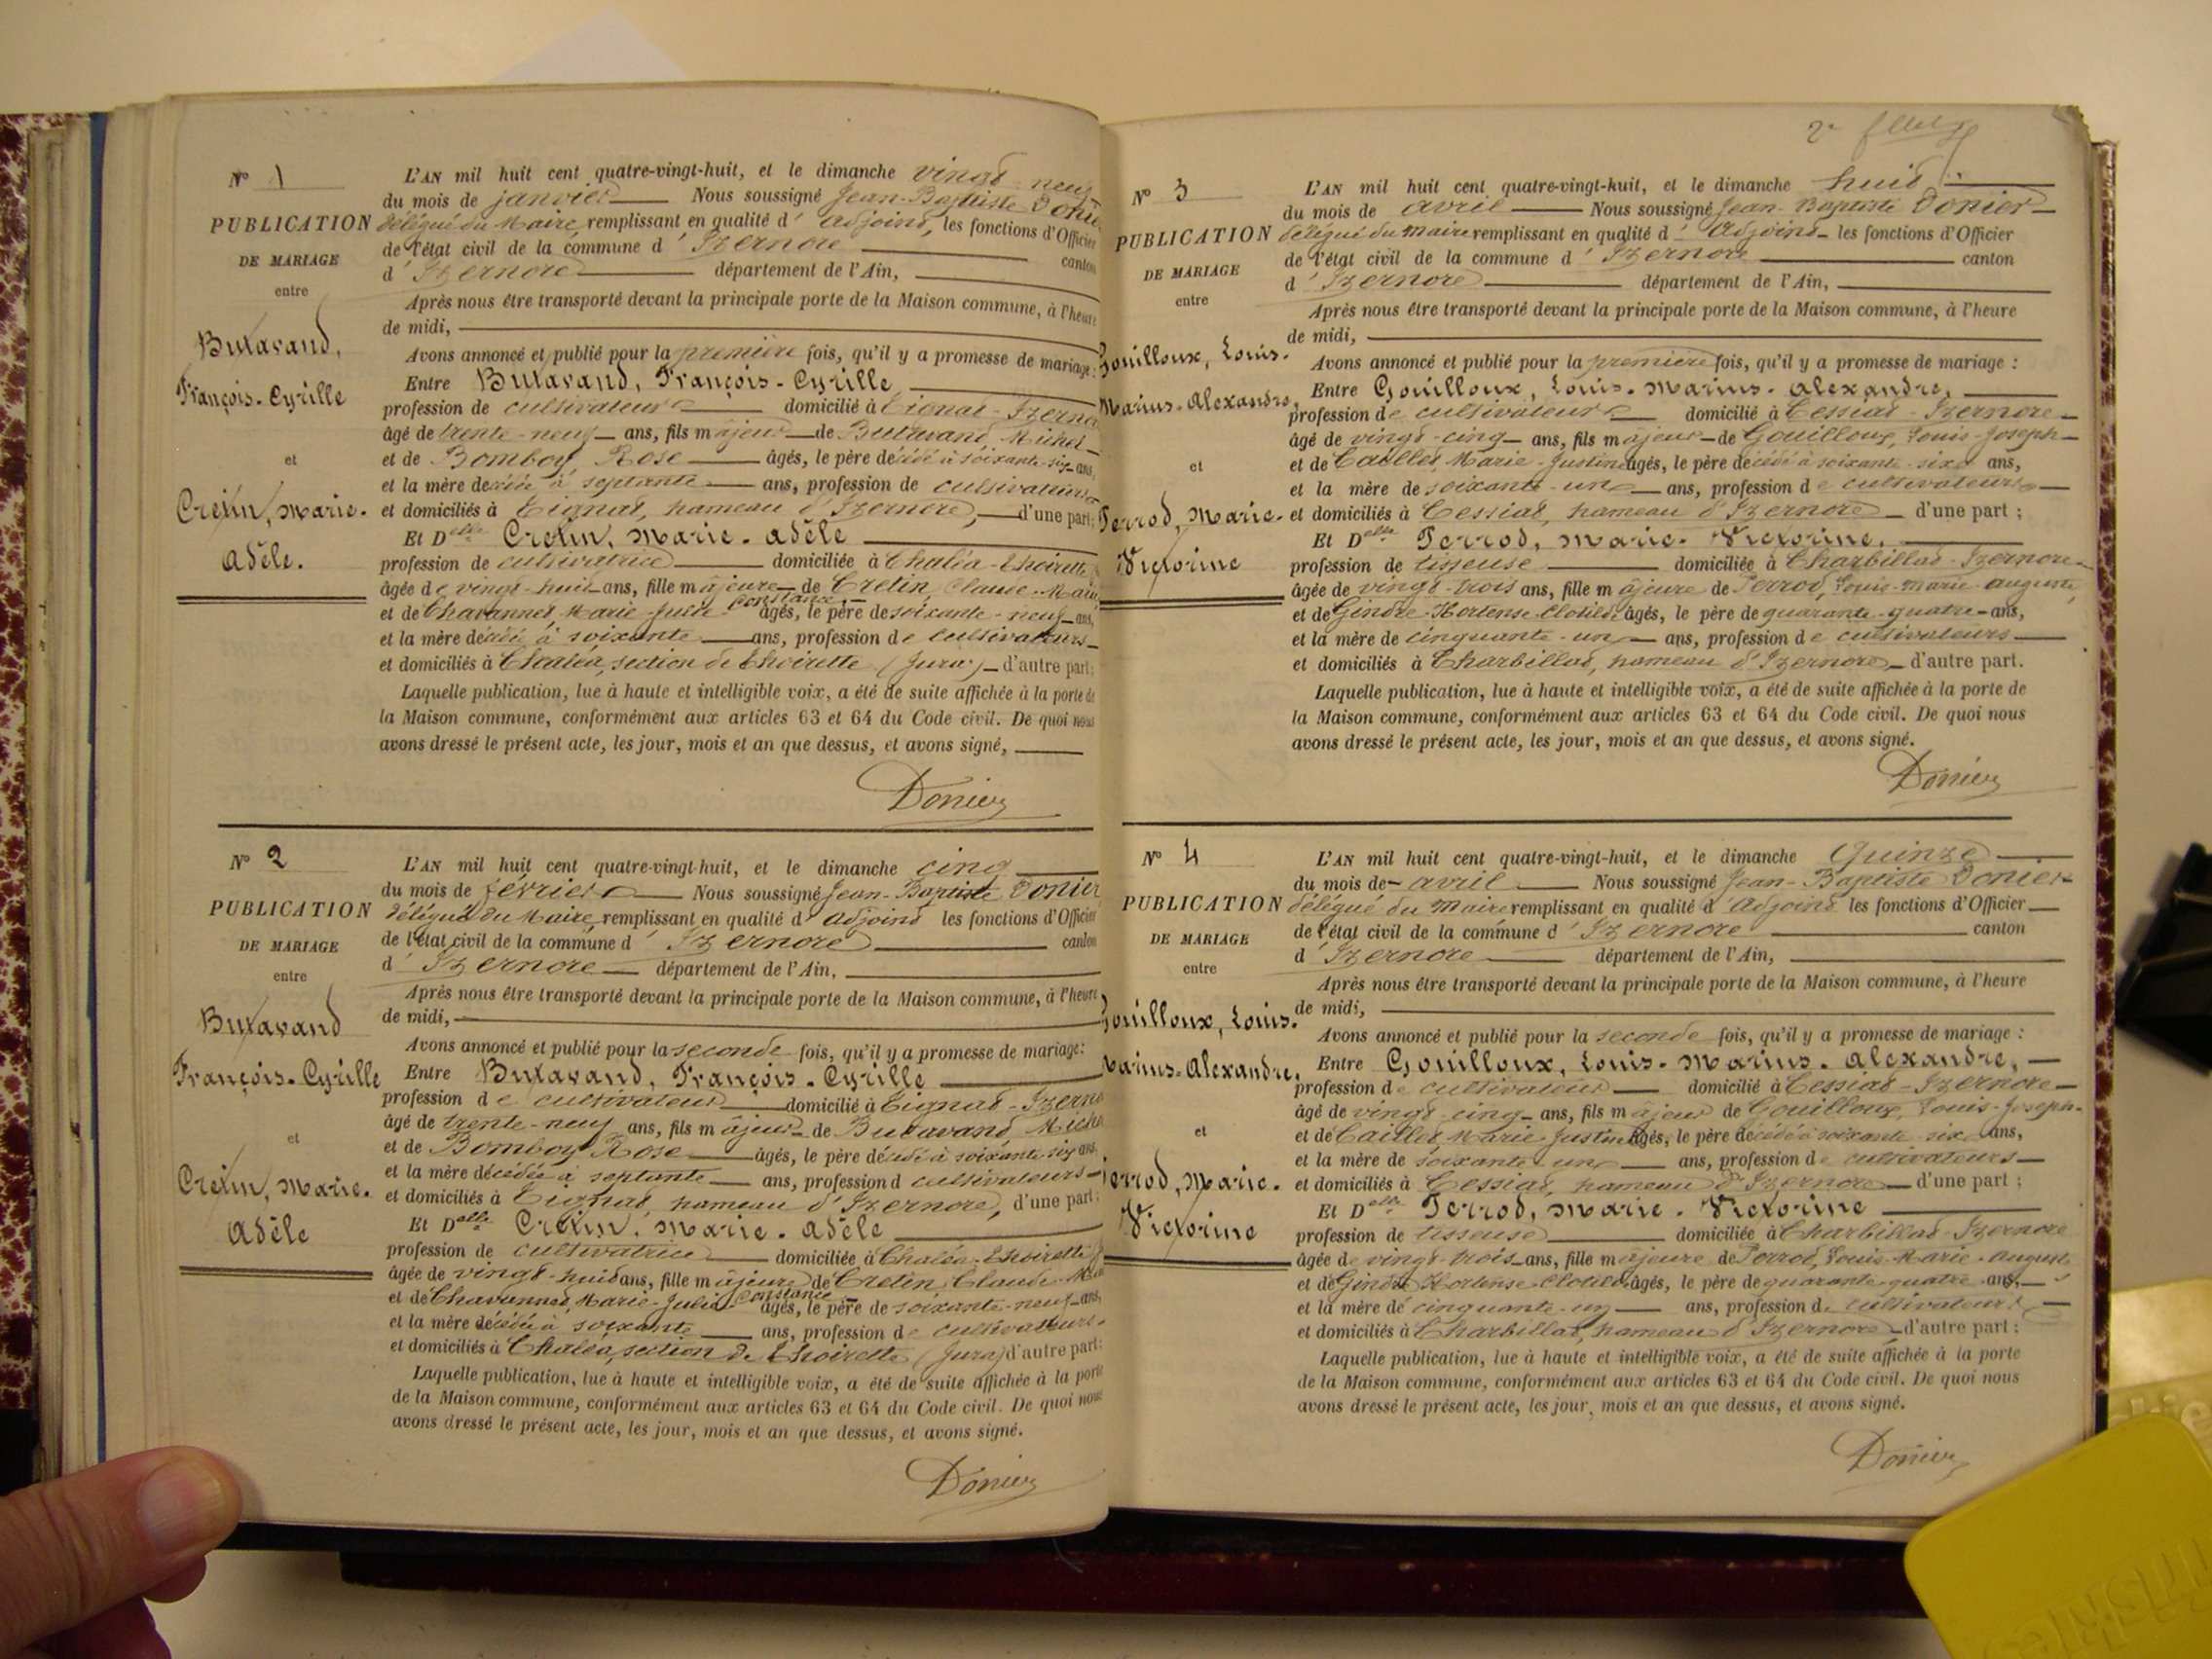 N° 1
PUBLICATION
DE MARIAGE
entre
Butavand,
François-Cyrille
et
Cretin, Marie-
Adèle.
L'AN mil huit cent quatre-vingt-huit, et le dimanche vingt-neuf
du mois de janvier Nous soussigné Jean-Baptiste Donier
délégué du Maire, remplissant en qualité d'adjoint, les fonctions d'Officier
de l'état civil de la commune d'Izernore canton
d'Izernore département de l'Ain,
Après nous être transporté devant la principale porte de la Maison commune, à l'heure
de midi,
Avons annoncé et publié pour la première fois, qu'il y a promesse de mariage:
Entre Butavand, François-Cyrille
profession de cultivateur domicilié à Tignat-Izernore
âgé de trente-neuf ans, fils majeur de Butavand, Michel
et de Bomboy, Rose âgés, le père décédé à soixante-six ans,
et la mère décédée à septante ans, profession de cultivateurs
et domiciliés à Tignat, hameau d'Izernore, d'une part;
Et Delle Cretin, Marie-Adèle
profession de cultivatrice domiciliée à Chaléa-Thoirette
âgée de vingt-huit ans, fille majeure de Cretin, Claude-Marie
et de Chavannes, Marie-Julie Constance âgés, le père de soixante-neuf ans,
et la mère décédée à soixante ans, profession de cultivateurs
et domiciliés à Chaléa, section de Thoirette (Jura) d'autre part;
Laquelle publication, lue à haute et intelligible voix, a été de suite affichée à la porte de
la Maison commune, conformément aux articles 63 et 64 du Code civil. De quoi nous
avons dressé le présent acte, les jour, mois et an que dessus, et avons signé,
Donier
N° 2
PUBLICATION
DE MARIAGE
entre
Butavand
François-Cyrille
et
Cretin, Marie-
Adèle
L'AN mil huit cent quatre-vingt-huit, et le dimanche cinq
du mois de février Nous soussigné Jean-Baptiste Donier
délégué du Maire, remplissant en qualité d'adjoint les fonctions d'Officier
de l'état civil de la commune d'Izernore canton
d'Izernore département de l'Ain,
Après nous être transporté devant la principale porte de la Maison commune, à l'heure
de midi,
Avons annoncé et publié pour la seconde fois, qu'il y a promesse de mariage:
Entre Butavand, François-Cyrille
profession de cultivateur domicilié à Tignat-Izernore
âgé de trente-neuf ans, fils majeur de Butavand Michel
et de Bomboy Rose âgés, le père décédé à soixante-six ans
et la mère décédée à septante ans, profession d cultivateurs
et domiciliés à Tignat, hameau d'Izernore, d'une part;
Et Delle Cretin, Marie-Adèle
profession de cultivatrice domiciliée à Chaléa-Thoirette
âgée de vingt-huit ans, fille majeure de Cretin, Claude-Marie
et de Chavannes, Marie-Julie Constance âgés, le père de soixante-neuf ans,
et la mère décédée à soixante ans, profession de cultivateurs
et domiciliés à Chaléa, section de Thoirette (Jura) d'autre part;
Laquelle publication, lue à haute et intelligible voix, a été de suite affichée à la porte
de la Maison commune, conformément aux articles 63 et 64 du Code civil. De quoi nous
avons dressé le présent acte, les jour, mois et an que dessus, et avons signé.
Donier
2e
N° 3
PUBLICATION
DE MARIAGE
entre
Gouilloux, Louis-
Marius-Alexandre,
et
Perrod, Marie-
Victorine
L'AN mil huit cent quatre-vingt-huit, et le dimanche huit
du mois de avril Nous soussigné Jean-Baptiste Donier
délégué du Maire remplissant en qualité d'Adjoint les fonctions d'Officier
de l'état civil de la commune d'Izernore canton
d'Izernore département de l'Ain,
Après nous être transporté devant la principale porte de la Maison commune, à l'heure
de midi,
Avons annoncé et publié pour la première fois, qu'il y a promesse de mariage :
Entre Gouilloux, Louis-Marius-Alexandre,
profession de cultivateur domicilié à Cessiat-Izernore
âgé de vingt-cinq ans, fils majeur de Gouilloux, Louis-Joseph
et de Caillet, Marie-Justine âgés, le père décédé à soixante-six ans,
et la mère de soixante-un ans, profession de cultivateurs
et domiciliés à Cessiat, hameau d'Izernore d'une part ;
Et Delle Perrod, Marie-Victorine,
profession de tisseuse domiciliée à Charbillat-Izernore
âgée de vingt-trois ans, fille majeure de Perrod, Louis-Marie-Auguste,
et de Gindre-Hortense-Clotilde âgés, le père de quarante-quatre ans,
et la mère de cinquante-un ans, profession de cultivateurs
et domiciliés à Charbillat, hameau d'Izernore d'autre part.
Laquelle publication, lue à haute et intelligible voix, a été de suite affichée à la porte de
la Maison commune, conformément aux articles 63 et 64 du Code civil. De quoi nous
avons dressé le présent acte, les jour, mois et an que dessus, et avons signé.
Donier
N° 4
PUBLICATION
DE MARIAGE
entre
Gouilloux, Louis-
Marius-Alexandre,
et
Perrod, Marie-
Victorine
L'AN mil huit cent quatre-vingt-huit, et le dimanche Quinze
du mois de avril Nous soussigné Jean-Baptiste Donier
délégué du Maire remplissant en qualité d'Adjoint les fonctions d'Officier
de l'état civil de la commune d'Izernore canton
d'Izernore département de l'Ain,
Après nous être transporté devant la principale porte de la Maison commune, à l'heure
de midi,
Avons annoncé et publié pour la seconde fois, qu'il y a promesse de mariage :
Entre Gouilloux, Louis-Marius-Alexandre,
profession de cultivateur domicilié à Cessiat-Izernore
âgé de vingt-cinq ans, fils majeur de Gouilloux, Louis-Joseph-
et de Caillet Marie Justine âgés, le père décédé à soixante-six ans,
et la mère de soixante-un ans, profession de cultivateurs
et domiciliés à Cessiat, hameau d'Izernore d'une part ;
Et Delle Perrod, Marie-Victorine
profession de tisseuse domiciliée à Charbillat-Izernore
âgée de vingt-trois ans, fille majeure de Perrod, Louis-Marie-Auguste
et de Gindre Hortense-Clotilde âgés, le père de quarante-quatre ans,
et la mère de cinquante-un ans, profession de cultivateurs
et domiciliés à Charbillat, hameau d'Izernore d'autre part ;
Laquelle publication, lue à haute et intelligible voix, a été de suite affichée à la porte
de la Maison commune, conformément aux articles 63 et 64 du Code civil. De quoi nous
avons dressé le présent acte, les jour, mois et an que dessus, et avons signé.
Donier